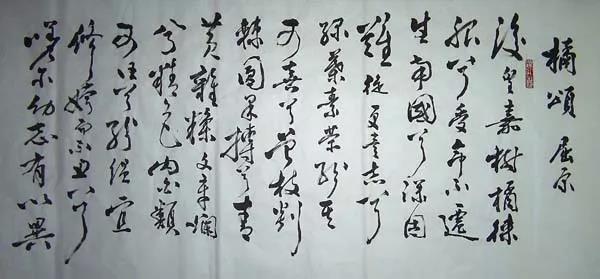 橘頌 屈原
後皇嘉樹橘徠
服兮受命不遷
生南國兮深固
難徙更壹志兮
綠葉素榮紛其
可喜兮曾枝剡
棘圓果摶兮青
黃雜糅文章爛
兮精色内白類
可任兮紛縕宜
修姱而不丑兮
嗟尔幼志有以異